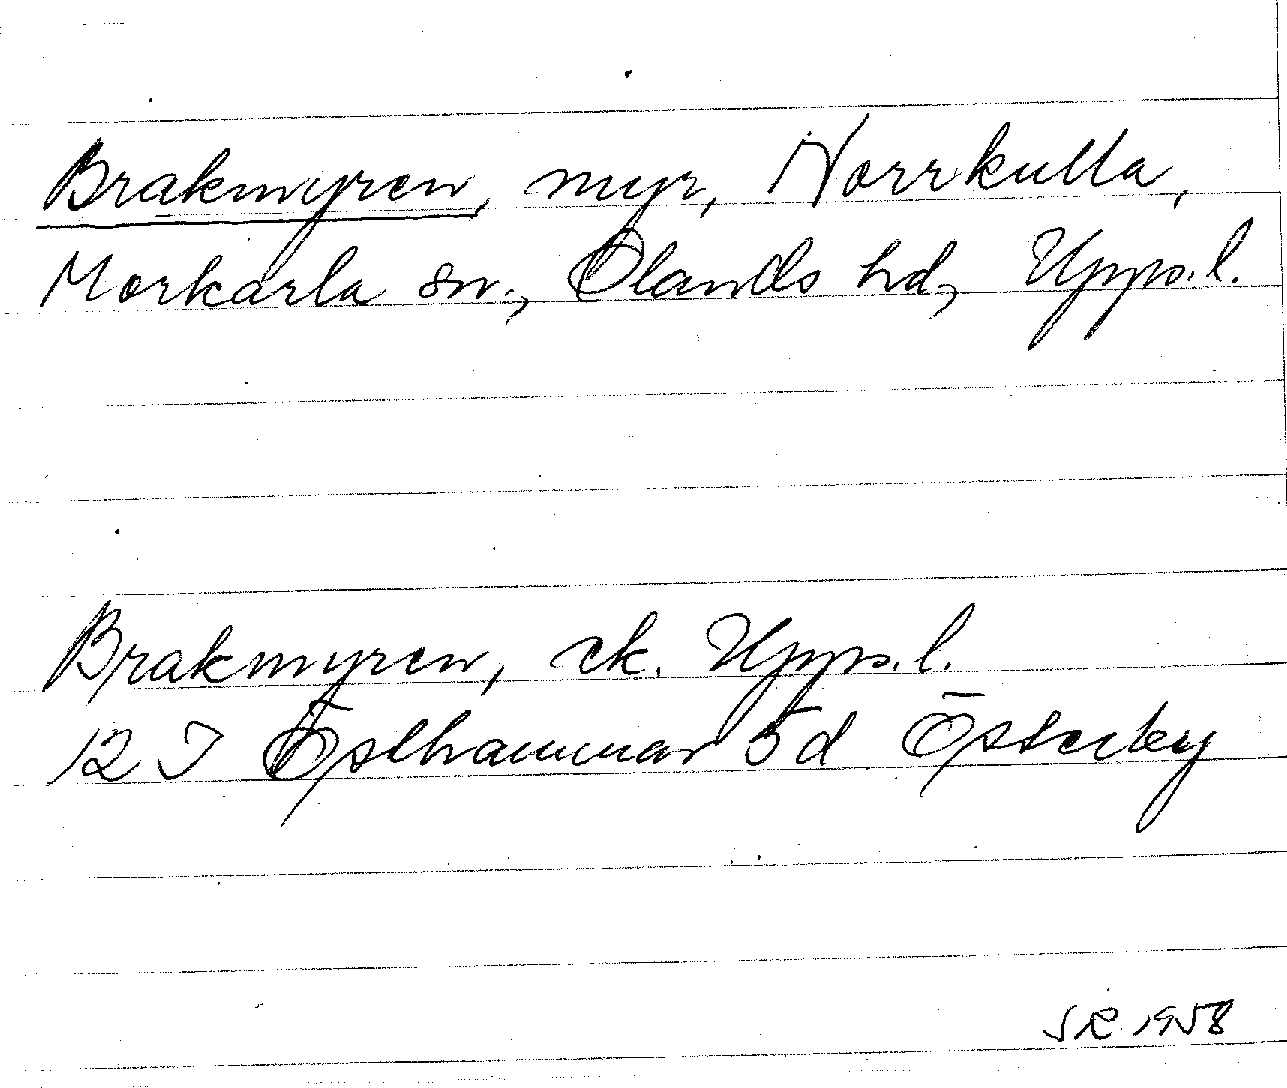 Brakmyren, myr, Norrkulla,
Morkarla sn., Olands hd, Upps.l.
Brakmyren, ek. Upps.l.
12 I Östhammar 5d Österby
SR 1958